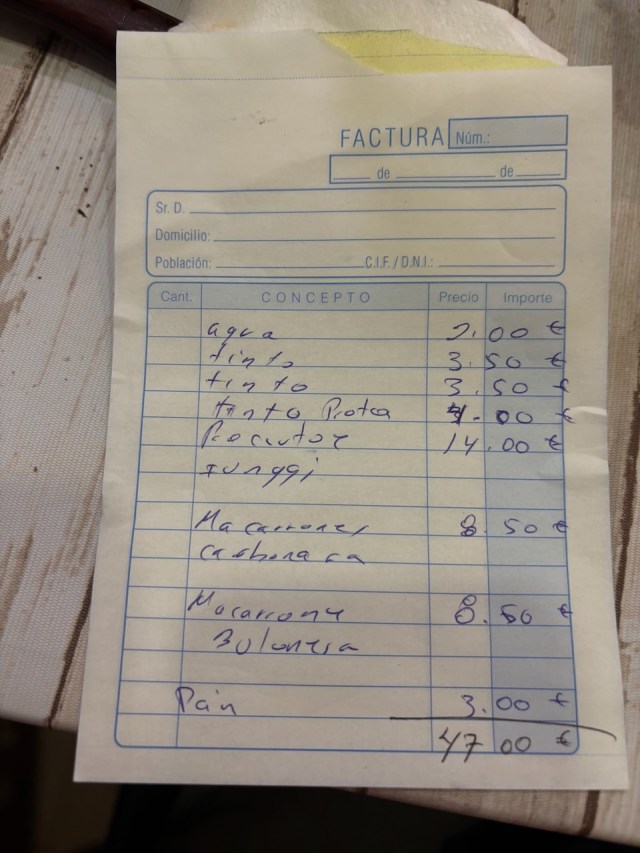 FACTURA Núm.:
de de
Sr. D.
Domicilio:
Población: C.I.F. / D.N.I.:
Cant. CONCEPTO Precio Importe
agua 2.00 €
tinto 3.50 €
tinto 3.50 €
tinto 4.00 €
14.00 €
Funggi
Macarrones 8.50 €
carbonara
Macarrone 8.50 €
Bulonesa
Pan 3.00 €
47 00 €